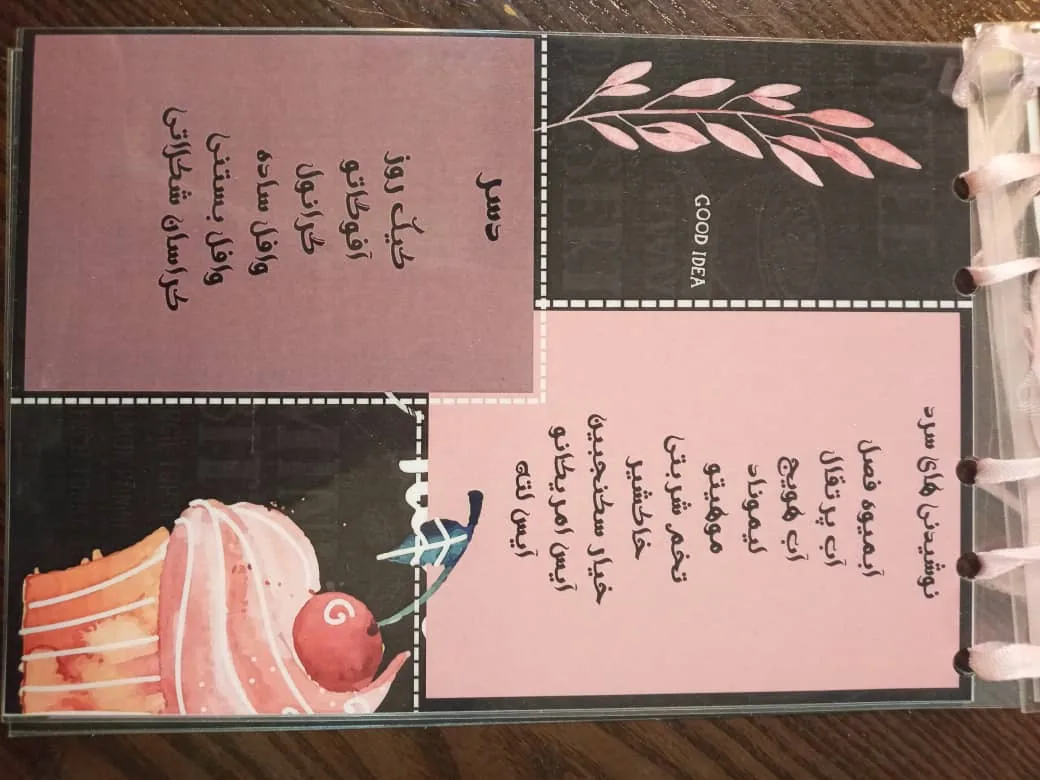 GOOD IDEA
نوشیدنی های سرد
آبمیوه فصل
آب پرتقال
آب هویج
لیموناد
موهیتو
تخم شربتی
خاکشیر
خیار سکنجبین
آیس امریکانو
آیس لته
دسر
کیک روز
آفوگاتو
گرانول
وافل ساده
وافل بستنی
کراسان شکلاتی